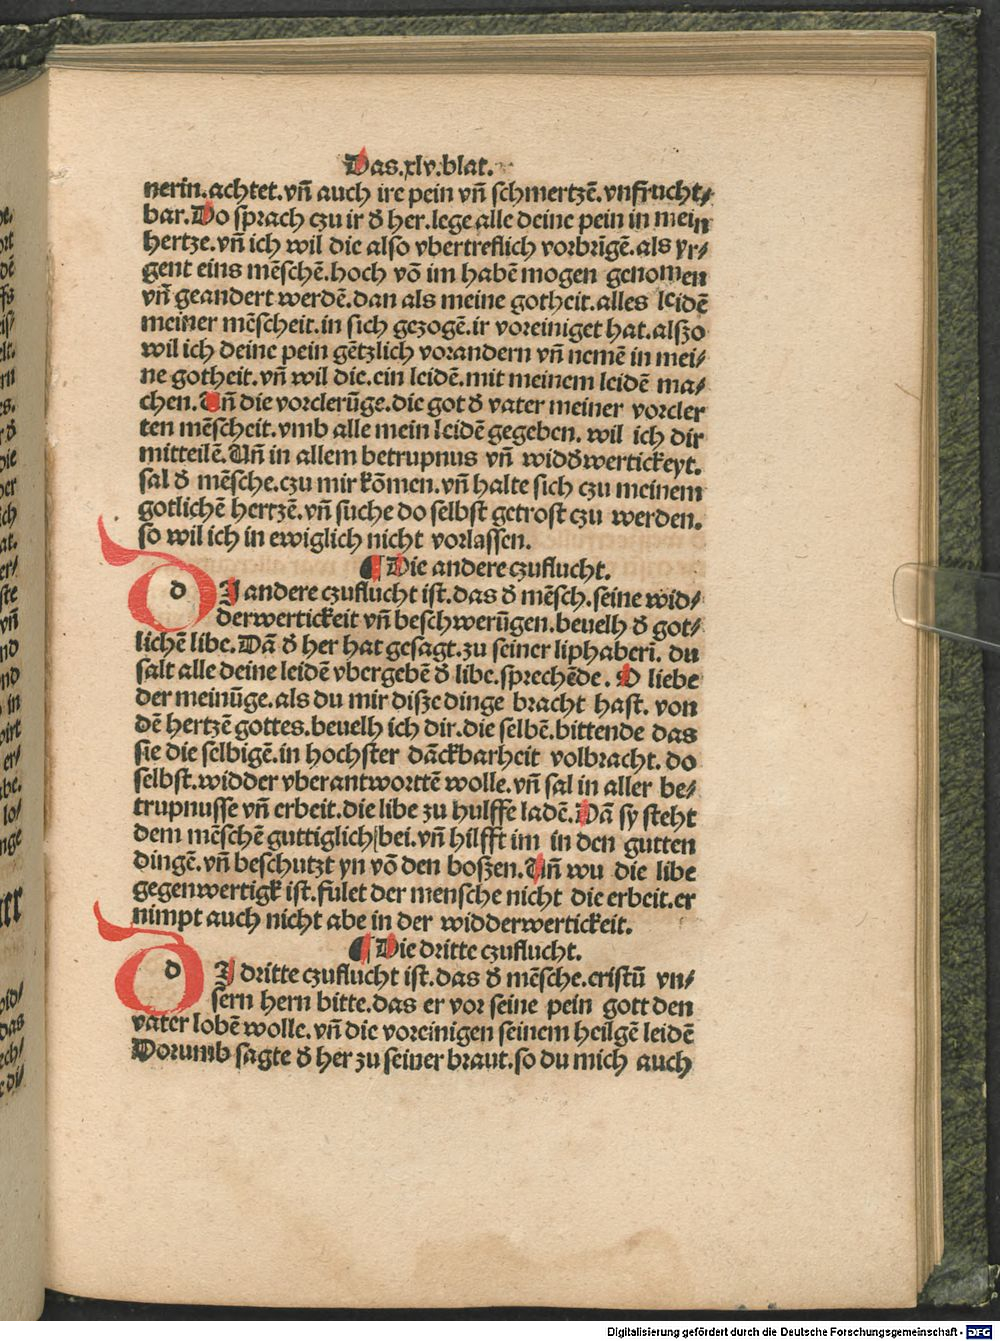 Das.xlv.blat.
nerin.achtet.vñ auch ire pein vñ schmertzē.vnfrucht⸗
bar.Do sprach czu ir d̄ her.lege alle deine pein in mein
hertze.vñ ich wil die also vbertreflich vorbrīgē.als yr⸗
gent eins mēschē.hoch vō im habē mogen genomen
vñ geandert werdē.dan als meine gotheit.alles leidē
meiner mēscheit.in sich gezogē.ir voreiniget hat.alszo
wil ich deine pein gētzlich vorandern vñ nemē in mei⸗
ne gotheit.vñ wil die.ein leidē.mit meinem leidē ma⸗
chen.Vñ die vorclerūge.die got d̄ vater meiner vorcler
ten mēscheit.vmb alle mein leidē gegeben. wil ich dir
mitteilē.Vñ in allem betrupnus vñ widd̄wertickeyt.
sal d̄ mēsche.czu mir kōmen.vñ halte sich czu meinem
gotlichē hertzē.vñ suche do selbst getrost czu werden.
so wil ich in ewiglich nicht vorlassen.
¶ Die andere czuflucht.
d I andere czuflucht ist.das d̄ mēsch.seine wid⸗
derwertickeit vñ beschwerūgen.beuelh d̄ got⸗
lichē libe.Dā d̄ her hat gesagt.zu seiner liphaberī. du
salt alle deine leidē vbergebē d̄ libe.sprechēde. O liebe
der meinūge.als du mir disze dinge bracht hast. von
dē hertzē gottes.beuelh ich dir.die selbē.bittende das
sie die selbigē.in hochster dāckbarheit volbracht. do
selbst.widder vberantworttē wolle.vñ sal in aller be⸗
trupnusse vñ erbeit.die libe zu hulffe ladē.Dā sy steht
dem mēschē guttiglich bei.vñ hilfft im in den gutten
dingē.vñ beschutzt yn vō den boszen.Vñ wu die libe
gegenwertigk ist.fulet der mensche nicht die erbeit.er
nimpt auch nicht abe in der widderwertickeit.
¶ Die dritte czuflucht.
d I dritte czuflucht ist.das d̄ mēsche.cristū vn⸗
sern hern bitte.das er vor seine pein gott den
vater lobē wolle.vñ die voreinigen seinem heilgē leidē
Dorumb sagte d̄ her zu seiner braut.so du mich auch
Digitalisierung gefördert durch die Deutsche Forschungsgemeinschaft - DFG